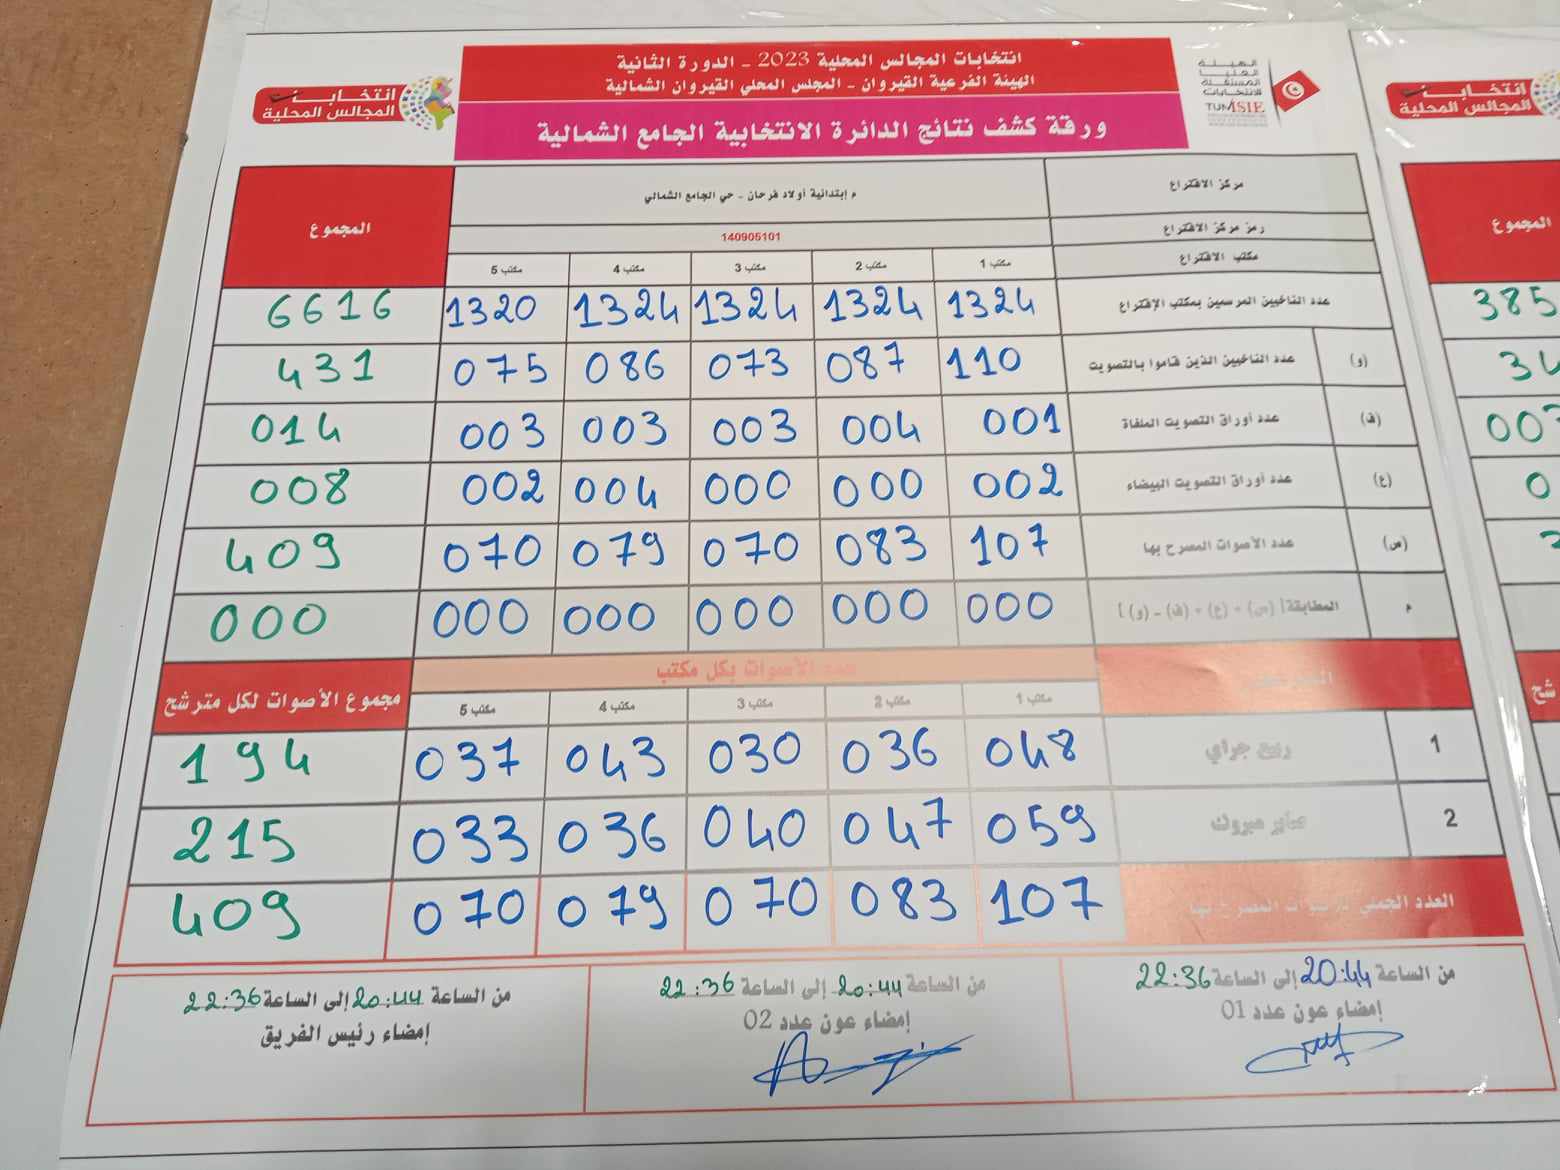 انتخابات المجالس المحلية 2023 - الدورة الثانية
الهيئة الفرعية القيروان - المجلس المحلي القيروان الشمالية
ورقة كشف نتائج الدائرة الانتخابية الجامع الشمالية
الهيئة العليا المستقلة للانتخابات
TUNISIE
انتخابات
المجالس المحلية
انتخابات
المجالس المحلية
مركز الاقتراع م إبتدائية أولاد فرحان - حي الجامع الشمالي المجموع
رمز مركز الاقتراع 140905101
مكتب الاقتراع مكتب 1 مكتب 2 مكتب 3 مكتب 4 مكتب 5
عدد الناخبين المرسمين بمكتب الإقتراع 1324 1324 1324 1324 1320 6616
(و) عدد الناخبين الذين قاموا بالتصويت 110 087 073 086 075 431
(ف) عدد أوراق التصويت الملغاة 001 004 003 003 003 014
(ع) عدد أوراق التصويت البيضاء 002 000 000 004 002 008
(س) عدد الأصوات المصرح بها 107 083 070 079 070 409
م المطابقة [ (س) + (ع) + (ف) - (و) ] 000 000 000 000 000 000
عدد الأصوات بكل مكتب مجموع الأصوات لكل مترشح
مكتب 1 مكتب 2 مكتب 3 مكتب 4 مكتب 5
1 ربيع جراي 048 036 030 043 037 194
2 صابر مبروك 059 047 040 036 033 215
العدد الجملي للأصوات المصرح بها 107 083 070 079 070 409
من الساعة 20:44 إلى الساعة 22:36
إمضاء عون عدد 01
من الساعة 20:44 إلى الساعة 22:36
إمضاء عون عدد 02
من الساعة 20:44 إلى الساعة 22:36
إمضاء رئيس الفريق
المجموع
385
34
00
0
شح